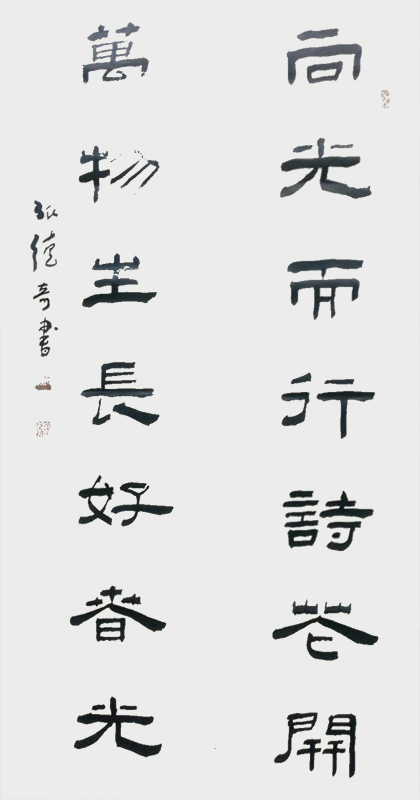 向光而行詩花開
萬物生長好春光
張德奇書